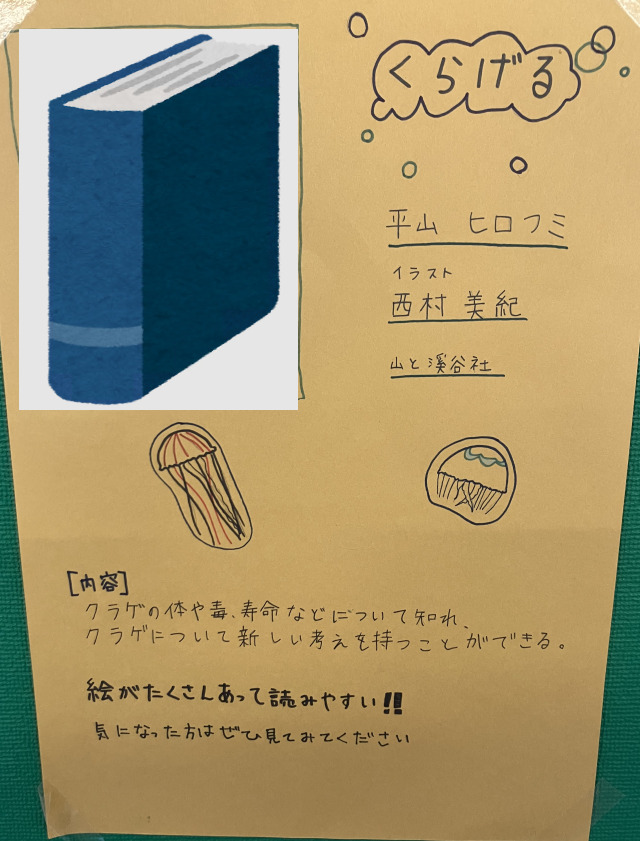 くらげる
平山 ヒロフミ
イラスト
西村 美紀
山と溪谷社
[内容]
クラゲの体や毒、寿命などについて知れ、
クラゲについて新しい考えを持つことができる。
絵がたくさんあって読みやすい!!
気になった方はぜひ見てみてください